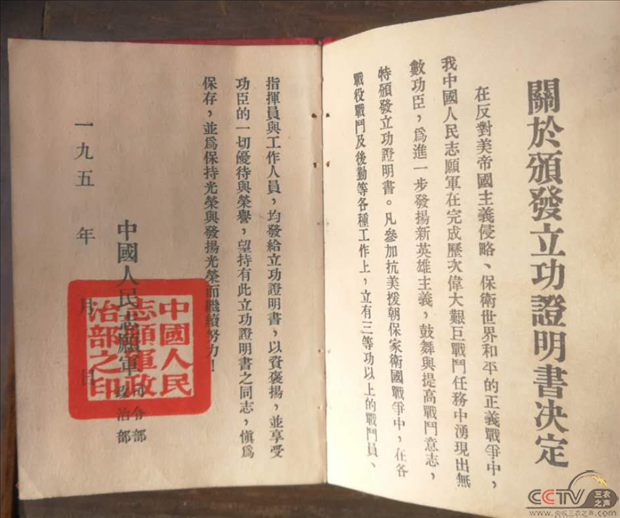 關於頒發立功證明書决定
在反對美帝國主義侵略、保衛世界和平的正義戰爭中，
我中國人民志願軍在完成歷次偉大艱巨戰鬥任務中湧現出無
數功臣，爲進一步發揚新英雄主義，鼓舞與提高戰鬥意志，
特頒發立功證明書。凡參加抗美援朝保家衛國戰爭中，在各
戰役戰鬥及後勤等各種工作上，立有三等功以上的戰鬥員、
指揮員與工作人員，均發給立功證明書，以資褒揚，並享受
功臣的一切優待與榮譽，望持有此立功證明書之同志，愼爲
保存，並爲保持光榮與發揚光榮而繼續努力！
中國人民志願軍
司令部
政治部
一九五 年 月 日
中國人民
志願軍政
治部之印
CCTV 三农之声
www.央视三农之声.com